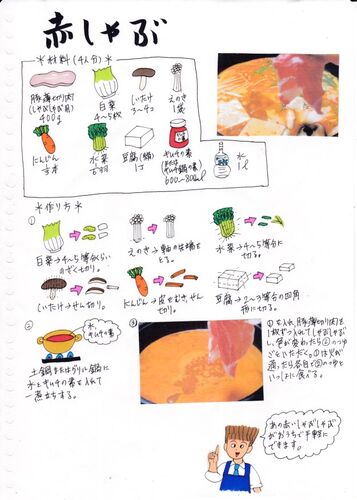 赤しゃぶ
*材料(4人分)*
豚薄切り肉
(しゃぶしゃぶ用)
400g
白菜
4〜5枚
しいたけ
3〜4コ
えのき
1袋
にんじん
水菜
豆腐(絹)
1丁
キムチの素
または
キムチ鍋の素
600〜800ml
水
1ℓ
*作り方*
①
白菜→4〜5等分くらい
のざく切り。
えのき→軸の末端を
とる。
水菜→4〜5等分に
切る。
しいたけ→せん切り。
にんじん→皮をむき、せん
切り。
豆腐→2〜3等分の四角
形に切る。
②
水、
キムチの素
土鍋またはグリル鍋に
水とキムチの素を入れて
一煮立ちする。
③
①を入れ、豚薄切り肉を
1枚ずつ入れてしゃぶしゃぶ
し、色が変わったら②のつゆ
ごといただく。①は火が
通ったら、各自で②のつゆと
いっしょに食べる。
あの赤いしゃぶしゃぶ
がおうちで手軽に
できます。